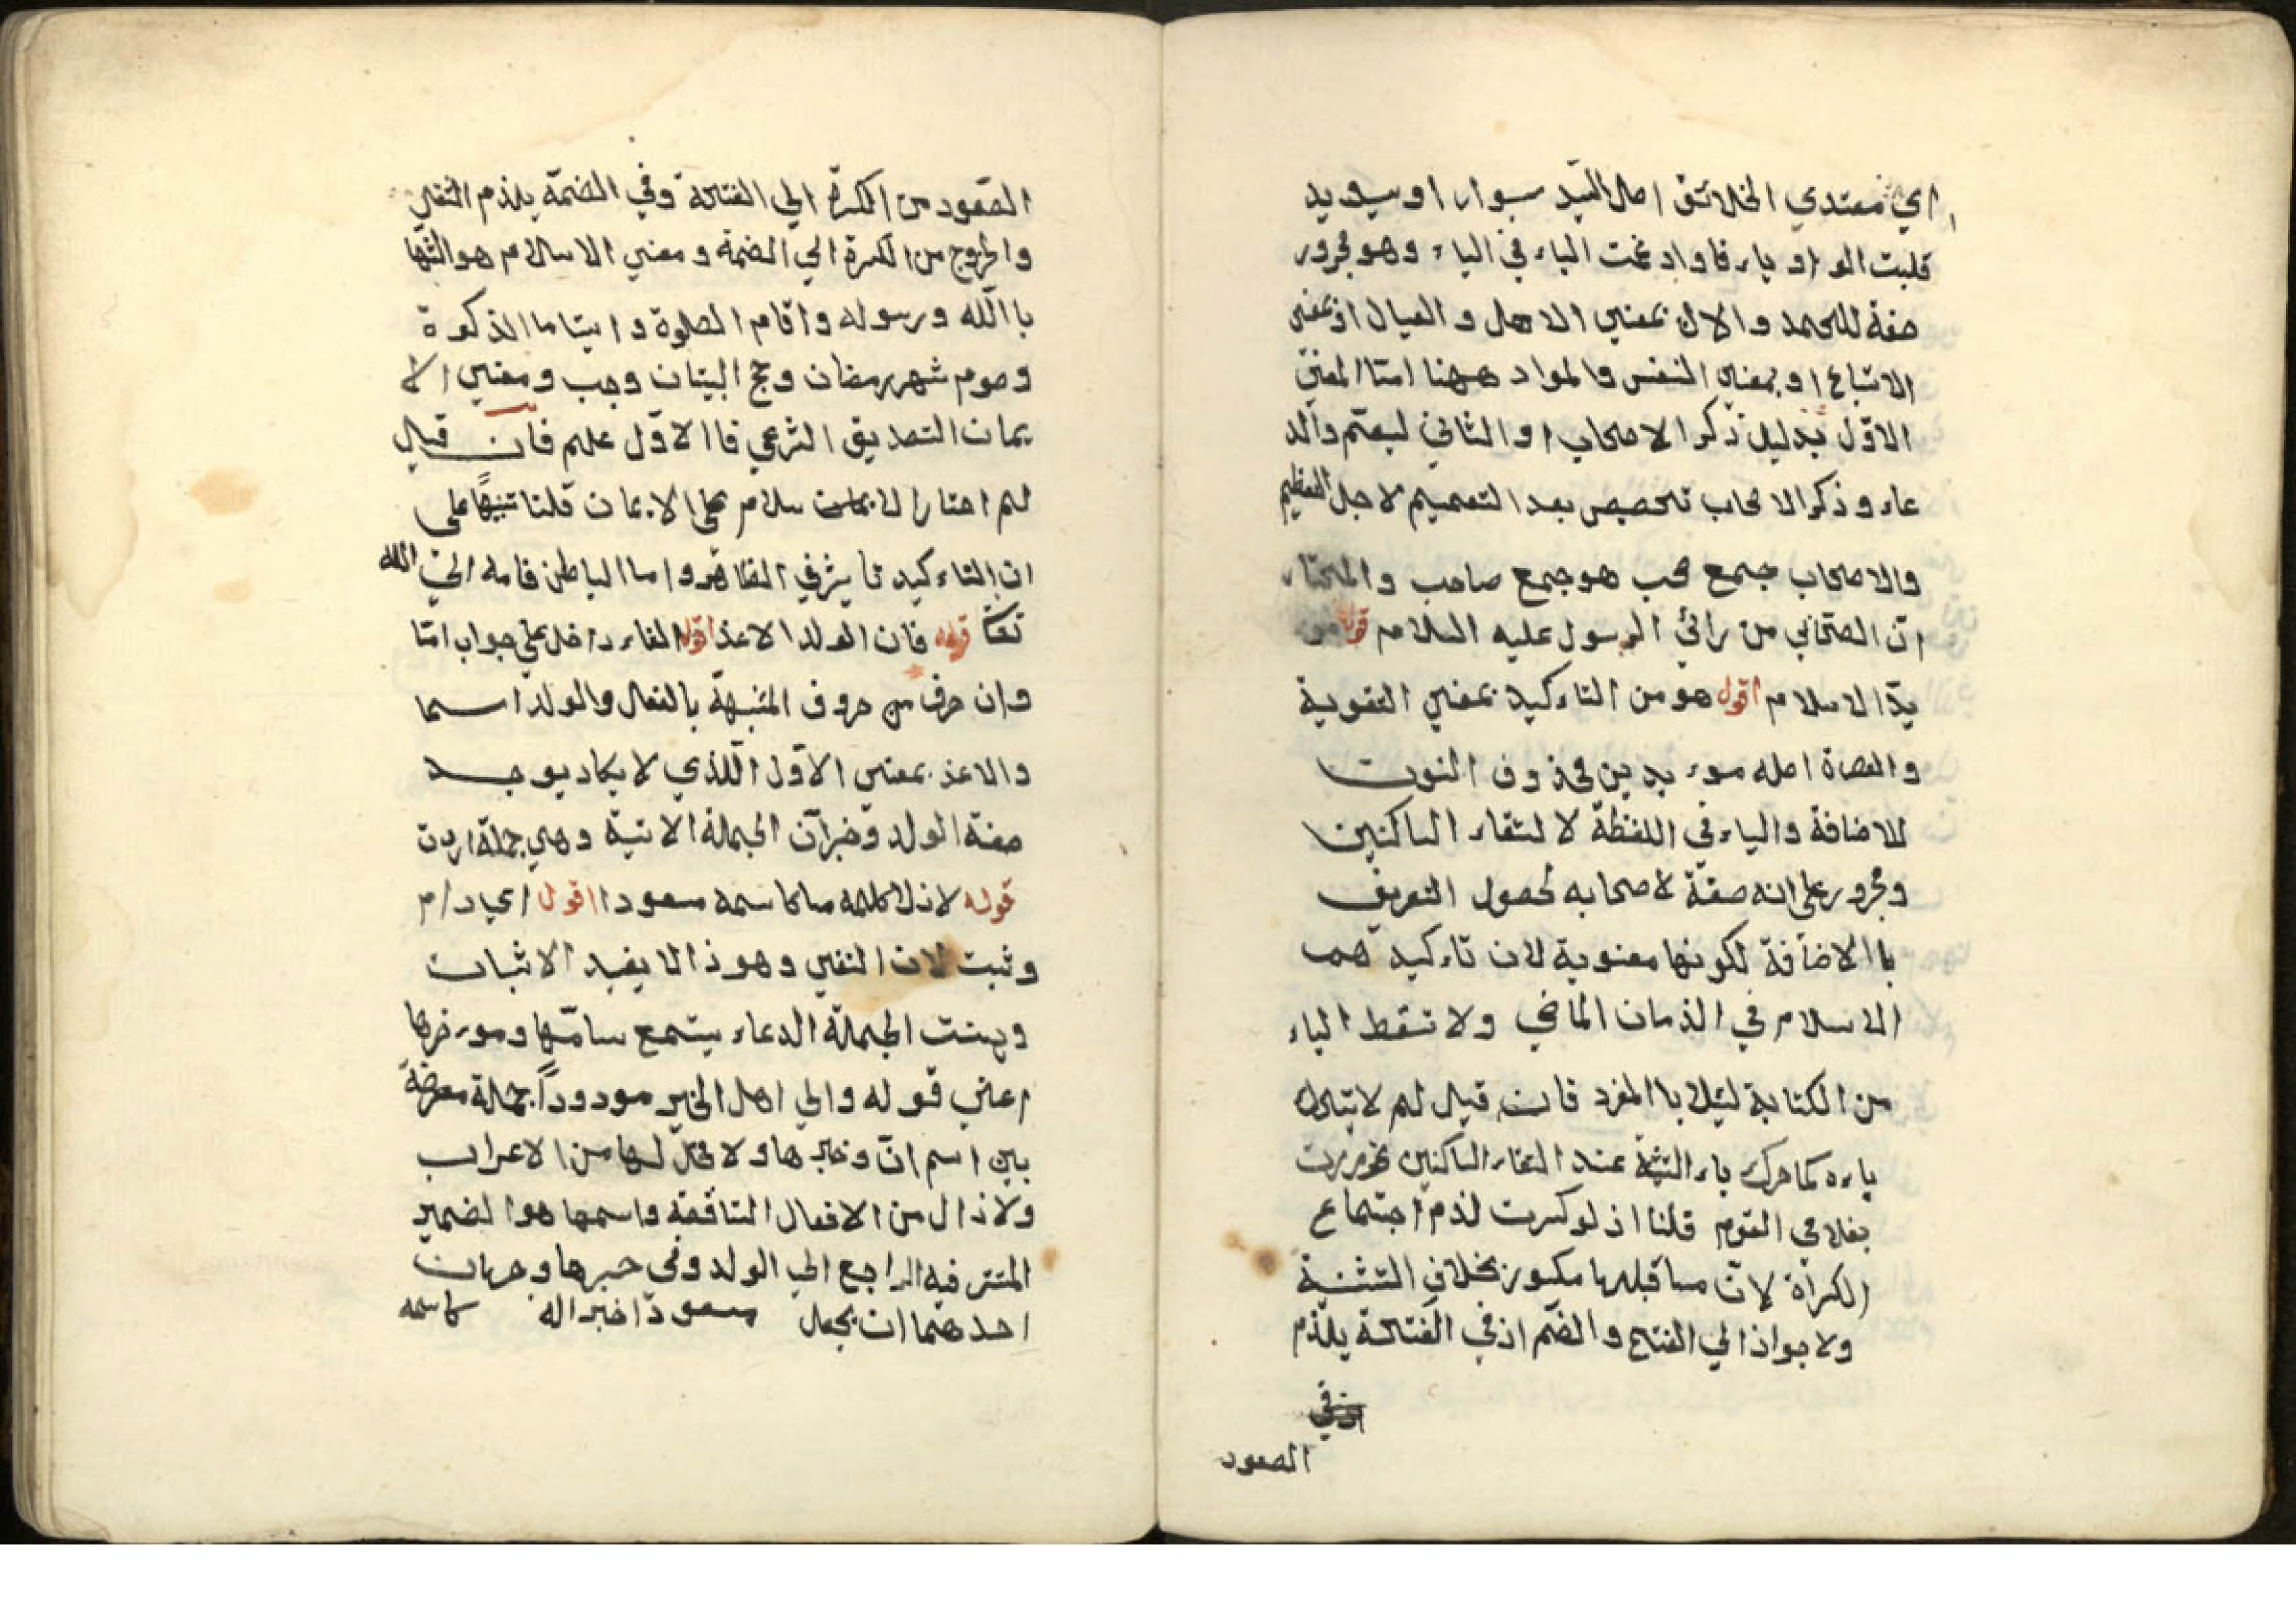 اي مقتدي الخلائق اصل السّيد سيوار اوسيويد
قلبت الواو ياء فاوادغمت الياء في الياء وهو مجرور
صفة للمحمد والال بمعني الاهل والعيال اوبمعني
الاتباع اوبمعني النفس والمواد ههنا امتا المعني
الاوّل بدليل ذكر الاصحاب او الثاني ليعمّ والد
عاء وذكر الاصحاب تخصيص بعد التعميم لاجل التعظيم
والاصحاب جمع صحب هو جمع صاحب والمختار
انّ الصحّابي من رائ الرسول عليه السلام قوله مو
يدّ الاسلام اقول هو من التاءكيد بمعني التقوية
والنصرة اصله موء يدين محذوف النون
للاضافة والياء في اللفظة لالتقاء الساكنين
ومجرور علي انه صفة لاصحابه لحصول التعريف
باالاضافة لكونها معنوية لان تاءكيدهم
الاسلام في الذمان الماضي ولا تسقط الياء
من الكتابة ليئلا باالمفرد فان قيل لم لا يتحرك
ياءه كما حرك ياء التثنية عند التقاء الساكنين نحو مررت
بغلامي القوم قلنا اذ لو كسرت لذم اجتماع
الكسرة لانّ ما قبلها مكسور بخلاف التثنية
ولا جواذ الي الفتح والضّم اذ في الفتحة يلذم
الصعود
الصّعود من الكسرة الي الفتحة وفي الضمّة يلذم الثقل
والخروج من الكسرة الي الضمة ومعني الاسلام هو الشها
باالله ورسوله واقام الصلوة وايتاما الذكوة
وصوم شهر رمضان وحج البيتان وجب ومعني الا
يمان التصديق الشرعي فاالاوّل علم فان قيل
لم اختار الاسلام علي الايمان قلنا تنبيهًا علي
ان التاءكيد تا يثر في الظاهر واما الباطن فامه الي الله
تعا قوله فان الولد الاعذ اقول الفاء داخل علي جواب امّا
وان حرف من حروف المشبهة بالفعال والولد اسما
والاعذ بمعني الاوّل اللذي لا يكاد يوجد
صفة الولد وخبر انّ الجملة الاتية وهي جملة اردت
قوله لاذلا كلمه ماكاسمه مسعودا اقول اي دام
وثبت لان النفي وهو ذالا يفيد الاثبات
وبهنت الجملة الدعاء يتمع سامّها وموءخرها
اعني قوله والي اهل الخير مودوداً جملة معرضة
بين اسم انّ وخبرها ولا محلّ لها من الاعراب
ولاذال من الافعال التاقعة واسمها هوا لضمير
المتتر فيه الراجع الي الولد وفي خبرها وجهان
احدهما ان يجعل مسعودّا خبرا له كاسمه